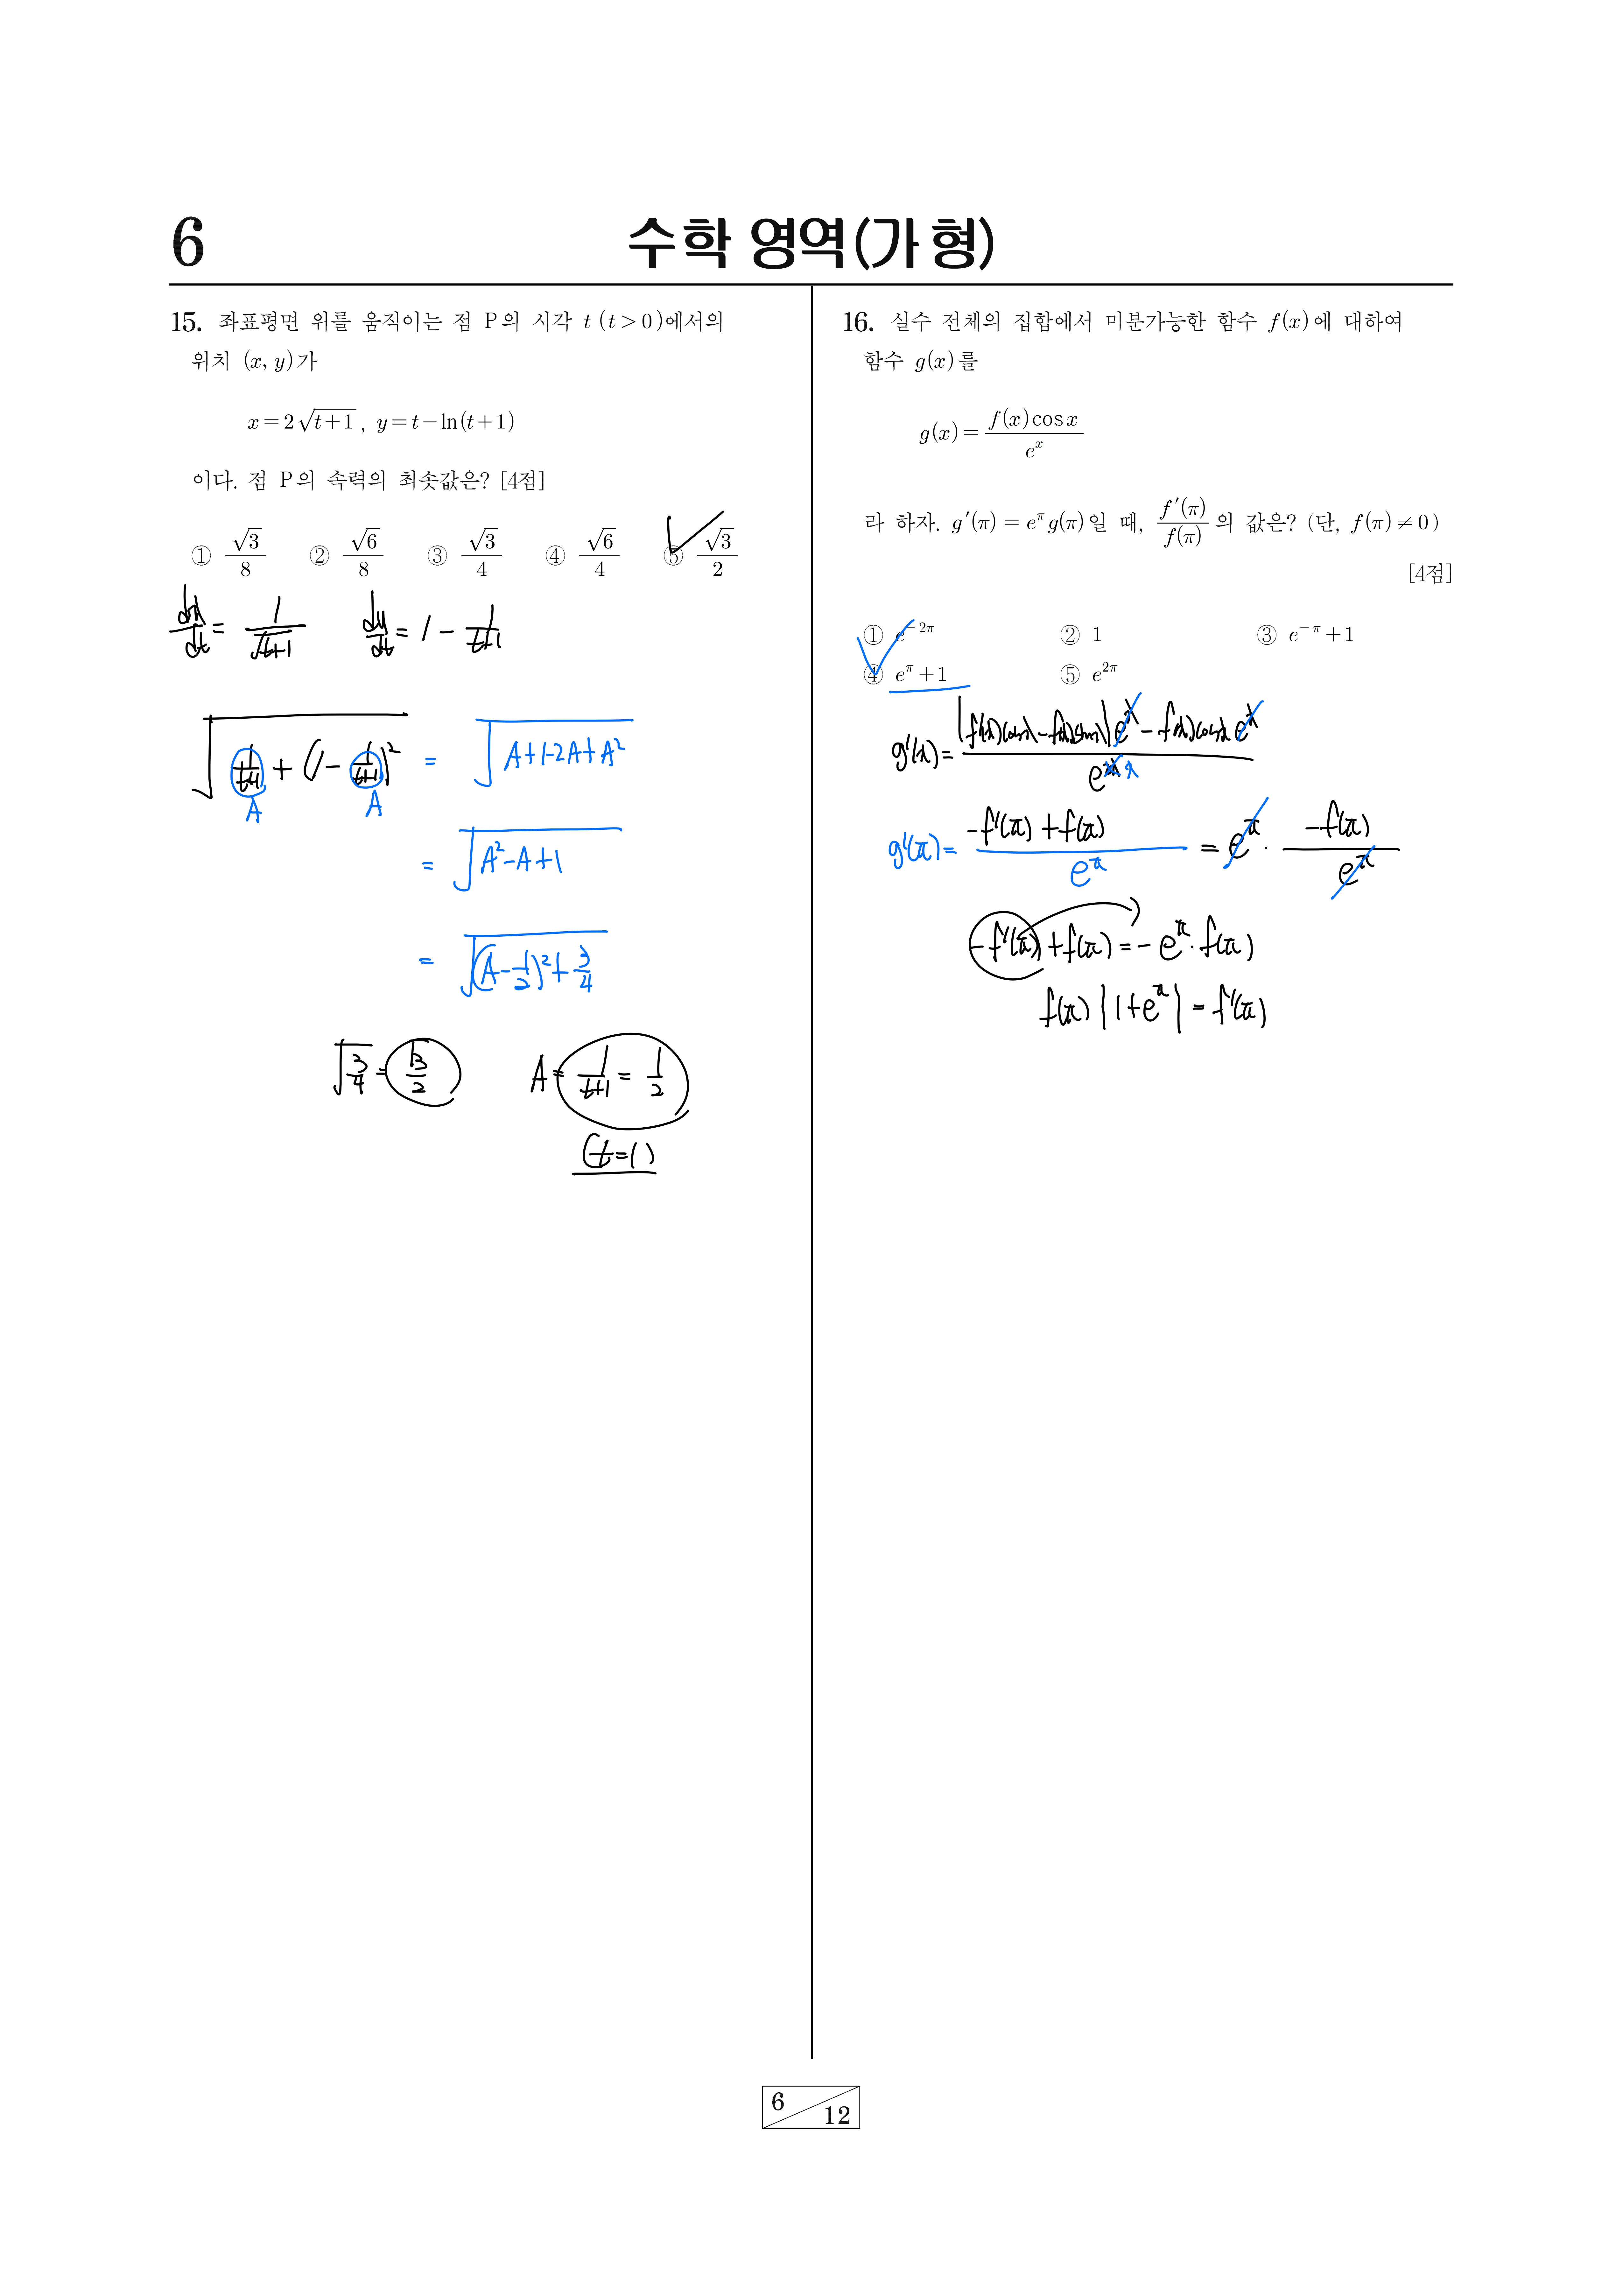 6
수학 영역(가 형)
15. 좌표평면 위를 움직이는 점 P의 시각 t (t>0)에서의
위치 (x, y)가
x=2√(t+1), y=t−ln(t+1)
이다. 점 P의 속력의 최솟값은? [4점]
① √3/8 ② √6/8 ③ √3/4 ④ √6/4 ⑤ √3/2
dx/dt = 1/√(t+1) dy/dt = 1 − 1/(t+1)
√(1/(t+1) + (1 − 1/(t+1))²) = √(A+1−2A+A²)
A A
= √(A²−A+1)
= √((A−1/2)²+3/4)
√(3/4) = √3/2 A = 1/(t+1) = 1/2
(t=1)
16. 실수 전체의 집합에서 미분가능한 함수 f(x)에 대하여
함수 g(x)를
g(x)= f(x)cosx / e^x
라 하자. g′(π)=e^π g(π)일 때, f′(π)/f(π)의 값은? (단, f(π)≠0)
[4점]
① e^(−2π) ② 1 ③ e^(−π)+1
④ e^π+1 ⑤ e^(2π)
g'(x)= ((f'(x)cosx−f(x)sinx)e^x − f(x)cosx e^x) / e^(2x) x
g'(π)= (−f'(π)+f(π)) / e^π = e^π · −f(π)/e^π
−f'(π)+f(π)=−e^π·f(π)
f(π)(1+e^π)=f'(π)
6
12